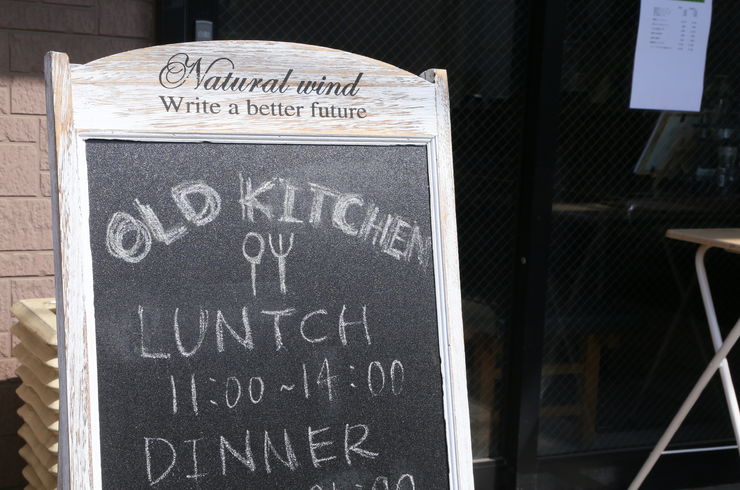 Natural wind
Write a better future
OLD KITCHEN
LUNTCH
11:00~14:00
DINNER